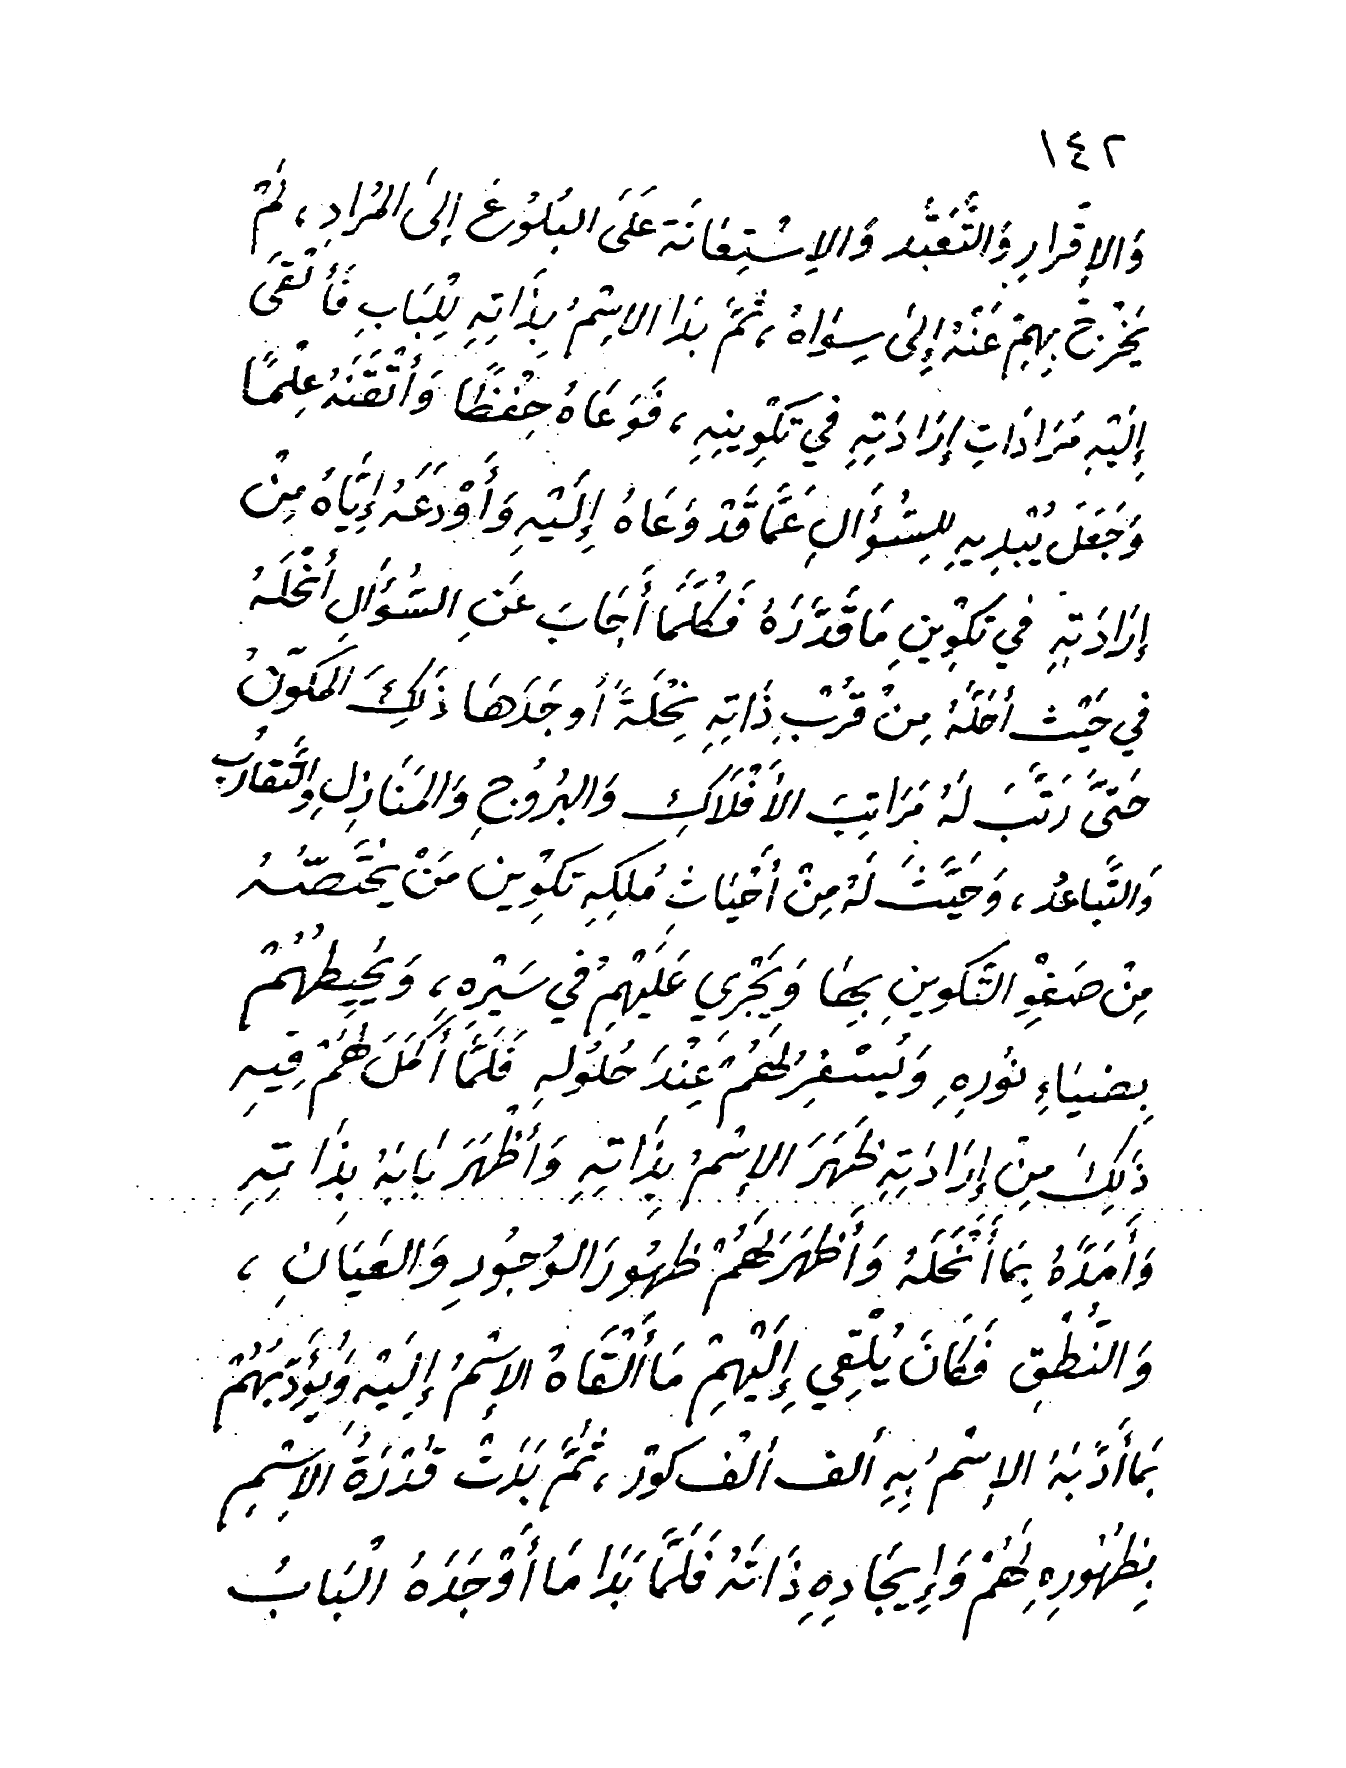 ١٤٢
وَالإِقْرَارِ وَالتَّعَبُّدِ وَالاِسْتِعَانَةِ عَلَى البُلُوغِ إِلَى المُرَادِ ، لَمْ
يَخْرُجْ بِهِمْ عَنْهُ إِلَى سِوَاهُ ، ثُمَّ بَدَا الاِسْمُ بِذَاتِهِ لِلْبَابِ فَأَلْقَى
إِلَيْهِ مُرَادَاتِ إِرَادَتِهِ فِي تَكْوِينِهِ ، فَوَعَاهُ حِفْظًا وَأَتْقَنَهُ عِلْمًا
وَجَعَلَ يُبْدِيهِ لِلسُّؤَالِ عَمَّا قَدْ وَعَاهُ إِلَيْهِ وَأَوْدَعَهُ إِيَّاهُ مِنْ
إِرَادَتِهِ فِي تَكْوِينِ مَا قَدَّرَهُ فَكُلَّمَا أَجَابَ عَنِ السُّؤَالِ أَنْحَلَهُ
فِي حَيْثُ أَحَلَّهُ مِنْ قُرْبِ ذَاتِهِ نِحْلَةً أَوجَدَهَا ذَلِكَ المُكَوِّنُ
حَتَّى رَتَّبَ لَهُ مَرَاتِبَ الأَفْلَاكِ وَالبُرُوجِ وَالمَنَازِلِ وَالتَّقَارُبِ
وَالتَّبَاعُدِ ، وَحَيَّثَ لَهُ مِنْ أَحْيَاثِ مُلْكِهِ تَكْوِينَ مَنْ يَخْتَصُّهُ
مِنْ صَفْوِ التَّكْوِينِ بِهَا وَيَجْرِي عَلَيْهِمْ فِي سَيْرِهِ ، وَيُحِيطُهُمْ
بِضِيَاءِ نُورِهِ وَيُسْفِرُ لَهُمْ عِنْدَ حُلُولِهِ فَلَمَّا أَكْمَلَ لَهُمْ فِيهِ
ذَلِكَ مِنْ إِرَادَتِهِ ظَهَرَ الإِسْمُ بِذَاتِهِ وَأَظْهَرَ بَابَهُ بِذَاتِهِ
وَأَمَدَّهُ بِمَا أَنْحَلَهُ وَأَظْهَرَ لَهُمْ ظُهُورَ الوُجُودِ وَالعَيَانِ ،
وَالنُّطْقِ فَكَانَ يُلْقِي إِلَيْهِمْ مَا أَلْقَاهُ الإِسْمُ إِلَيْهِ وَيُؤَدِّبُهُمْ
بِمَا أَدَّبَهُ الإِسْمُ بِهِ أَلفَ أَلْفِ كَوْرٍ ، ثُمَّ بَدَتْ قُدْرَةُ الاِسْمِ
بِظُهُورِهِ لَهُمْ وَإِيجَادِهِ ذَاتَهُ فَلَمَّا بَدَا مَا أَوْجَدَهُ الْبَابُ